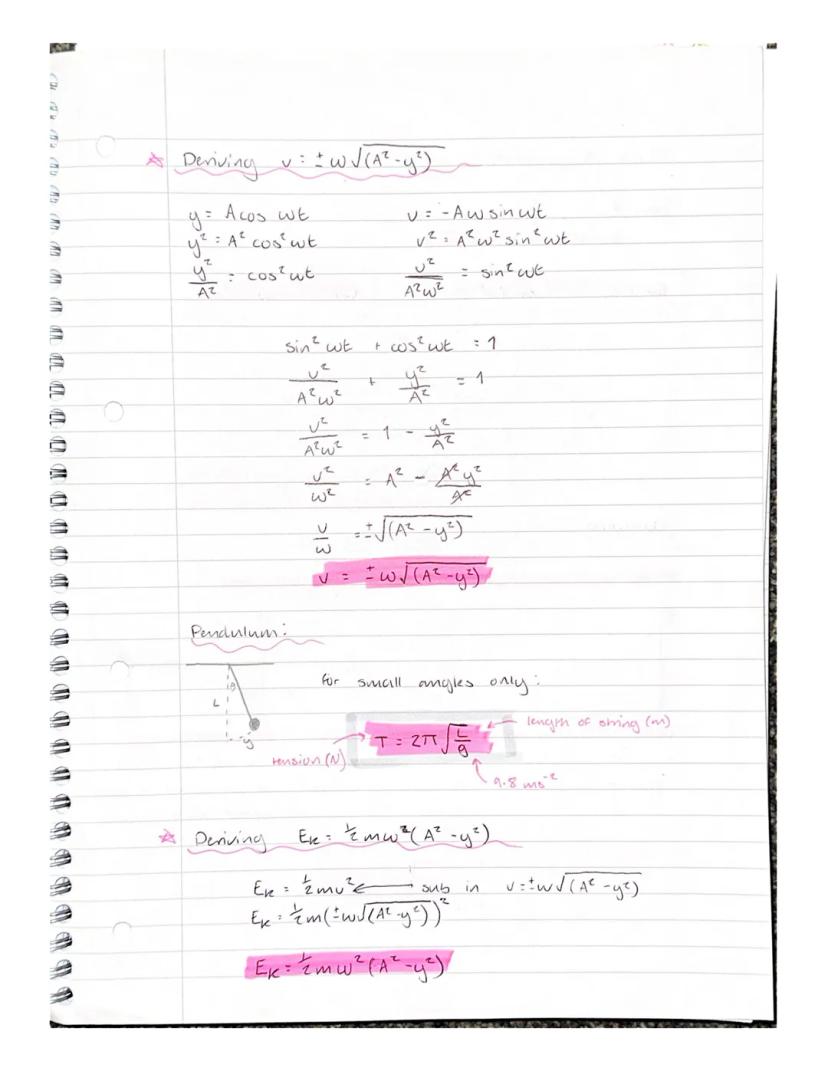 Deriving v = ± ω√(A² - y²)
y = A cos ωt
v = -Aω sin ωt
y² = A² cos² ωt
v² = A²ω² sin² ωt
y²/A² = cos² ωt
v²/A²ω² = sin² ωt
sin² ωt + cos² ωt = 1
v²/A²ω² + y²/A² = 1
v²/A²ω² = 1 - y²/A²
v²/ω² = A² - A²y²/A²
v/ω = ±√(A² - y²)
v = ± ω√(A² - y²)
Pendulum:
θ
L
y
for small angles only:
T = 2π√(L/g)
length of string (m)
tension (N)
9.8 ms⁻²
Deriving Eₖ = ½ mω²(A² - y²)
Eₖ = ½ mv² ← sub in v = ±ω√(A² - y²)
Eₖ = ½ m(±ω√(A² - y²))²
Eₖ = ½ mω²(A² - y²)